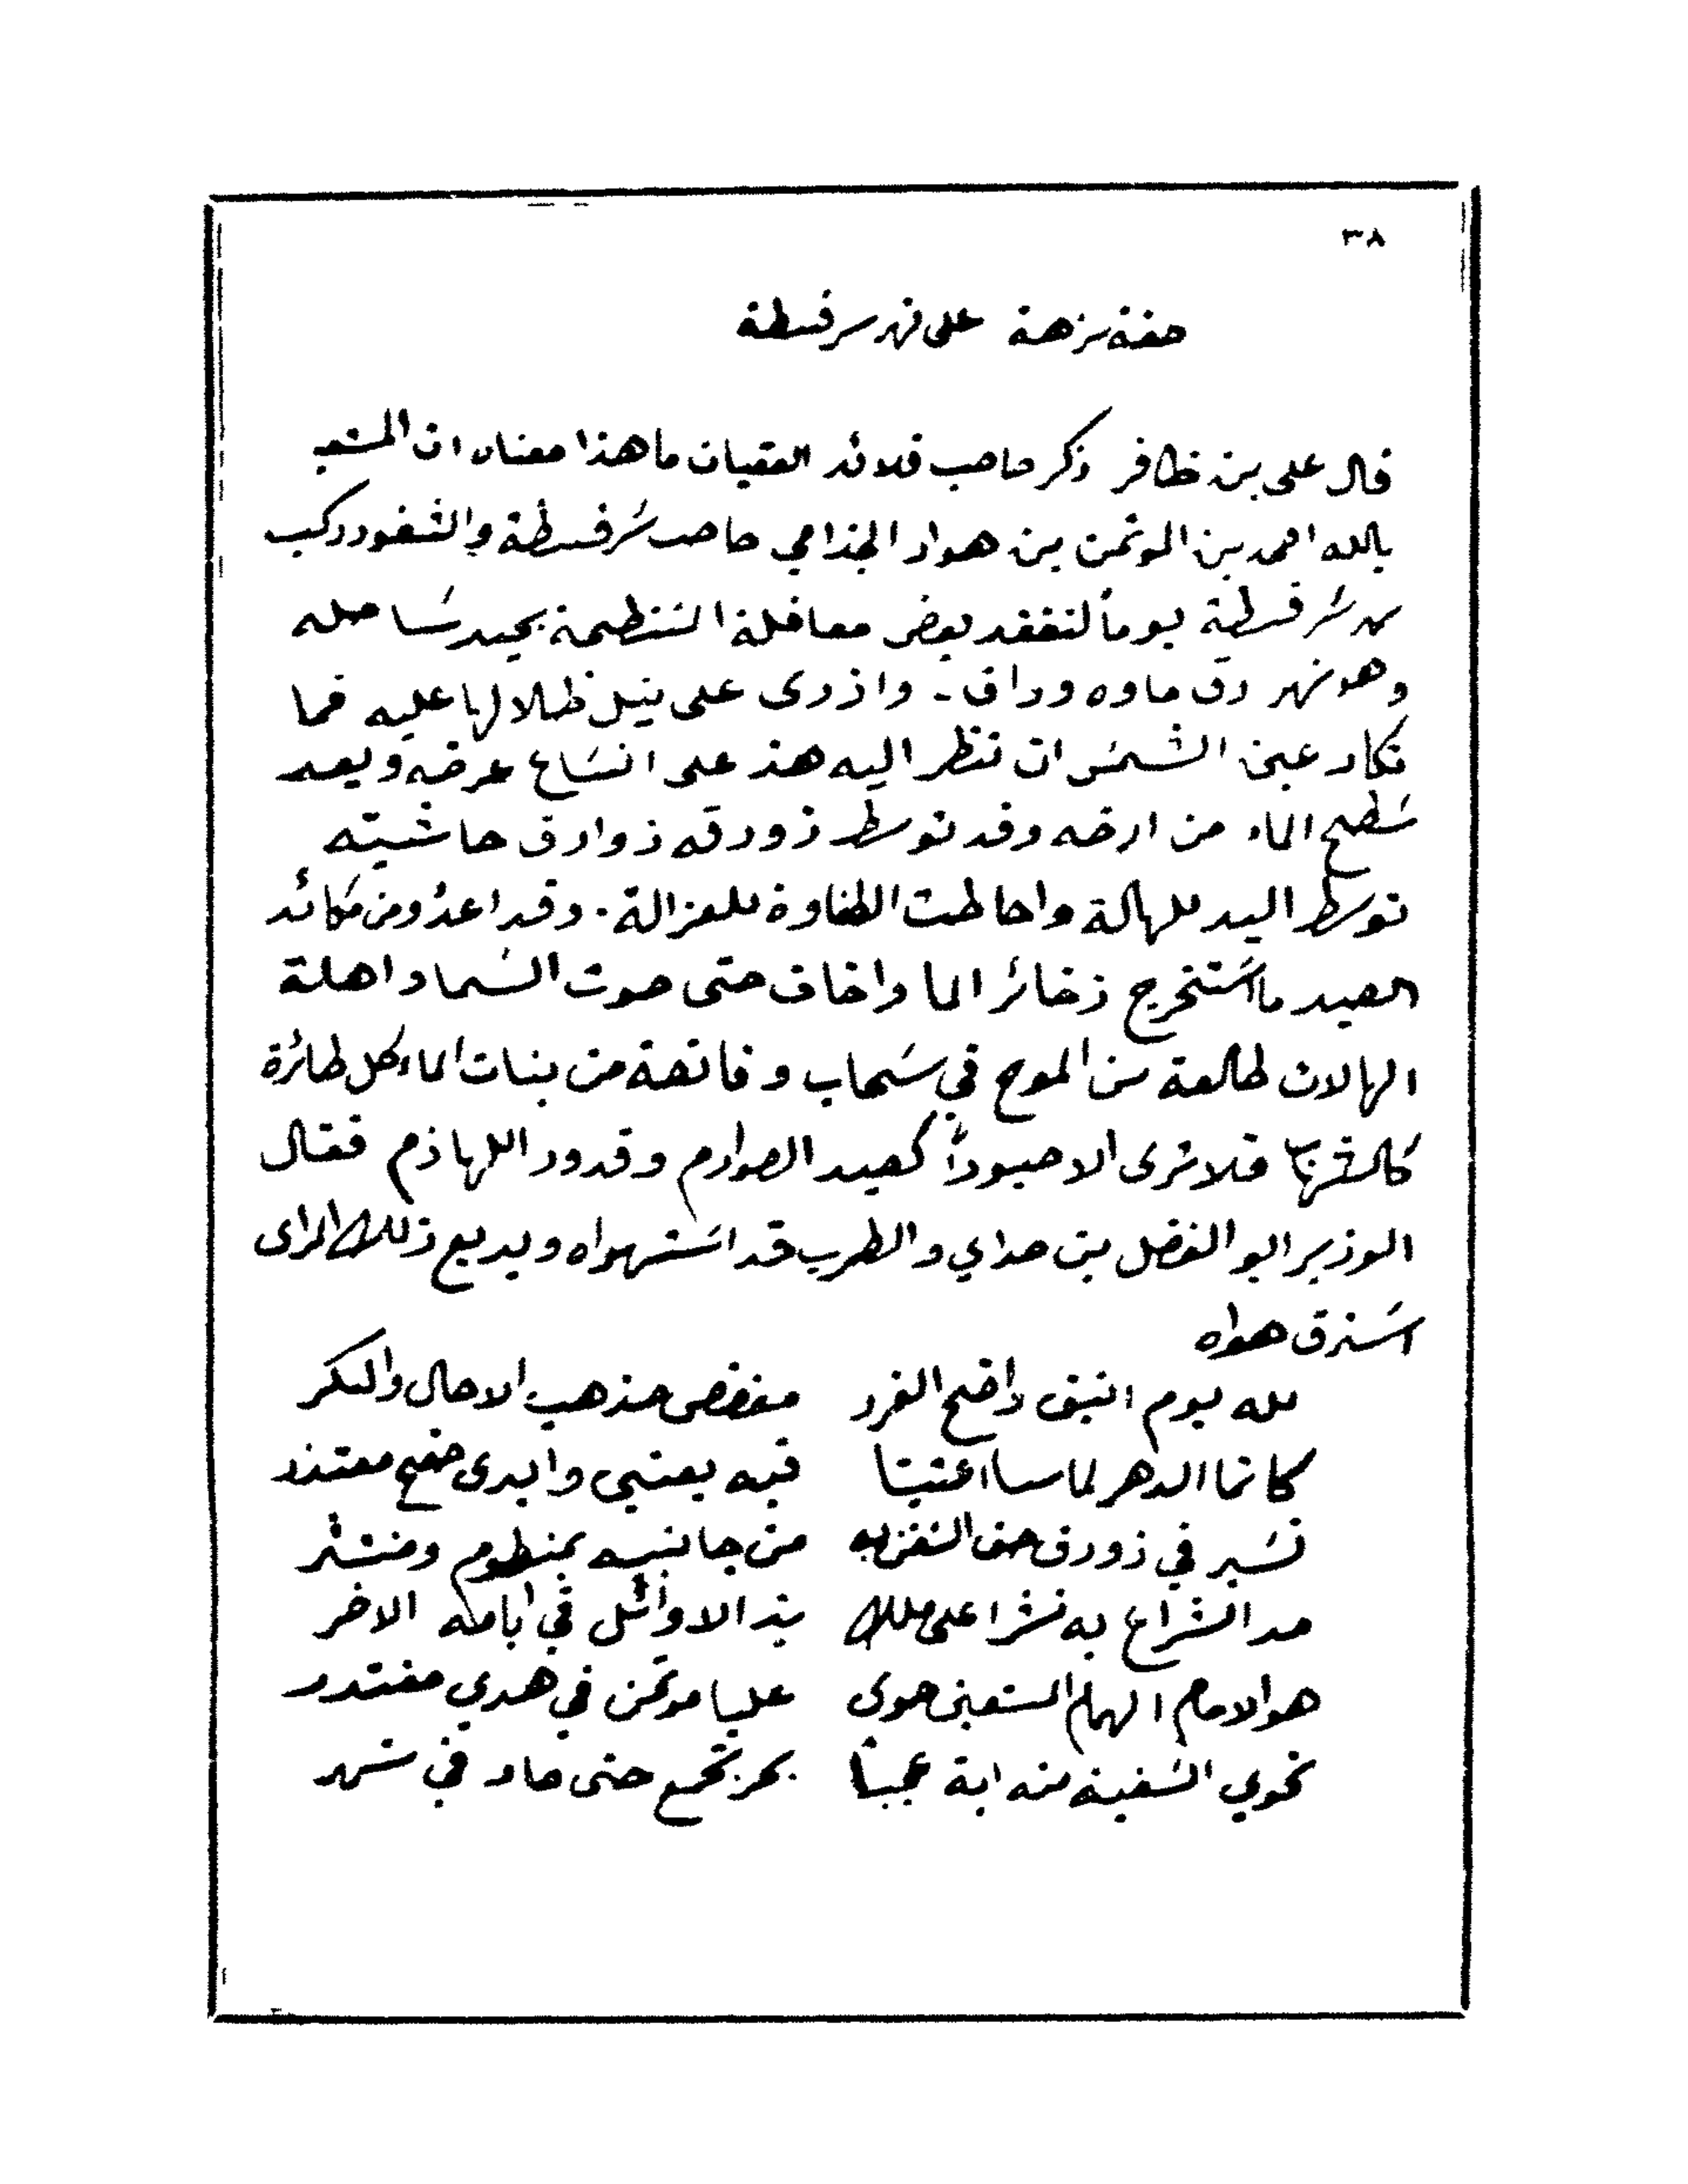 ٣٨
صفة نزهة على نهر سرقسطة
قال على بن ظافر ذكر صاحب قلائد العقيان ما هذا معناه ان المستعين
بالله احمد بن الموتمن بن هواد الجذامي صاحب سرقسطة والثغور ركب
نهر سرقسطة يوماً لتفقد بعض معاقلة المنتظمة بجيد ساحله
وهو نهر رق ماوه وراق - وازرى على نيل ظلالها عليه فما
تكاد عين الشمس ان تنظر اليه هذ على اتساع عرضه وبعد
سطح الماء من ارضه وقد توسط زورقه زوارق حاشيته
توسط البدر للهالة واحاطت الطفاوة للغزالة . وقد اعدوا من مكائد
الصيد ما استخرج ذخائر الما واخاف حتى حوت السما واهلة
الهالات طالعة من الموج في سحاب و قانصة من بنات الماء كل طائرة
كالشهاب فلا ترى الا صيوداً كصيد الصوارم وقدود اللهاذم فقال
الوزير ابو الفضل بن حداي والطرب قد استهواه وبديع ذلك المراى
استرق هواه
لله يوم انيق واضح الغرر مفضض مذهب الاصال والبكر
كانما الدهر لما ساا اعتبنا فيه بعتبى وابدى صفح معتذر
نسير في زورق حف السفين به من جانبيه بمنظوم ومنتثر
مد الشراع به نشرا على ملك بذ الاوائل في ايامه الاخر
هو الامام الهمام المستعين حوى عليا موتمن في هدي مقتدر
تحوي السفينة منه اية عجبا بحر تجمع حتى صار في نهر